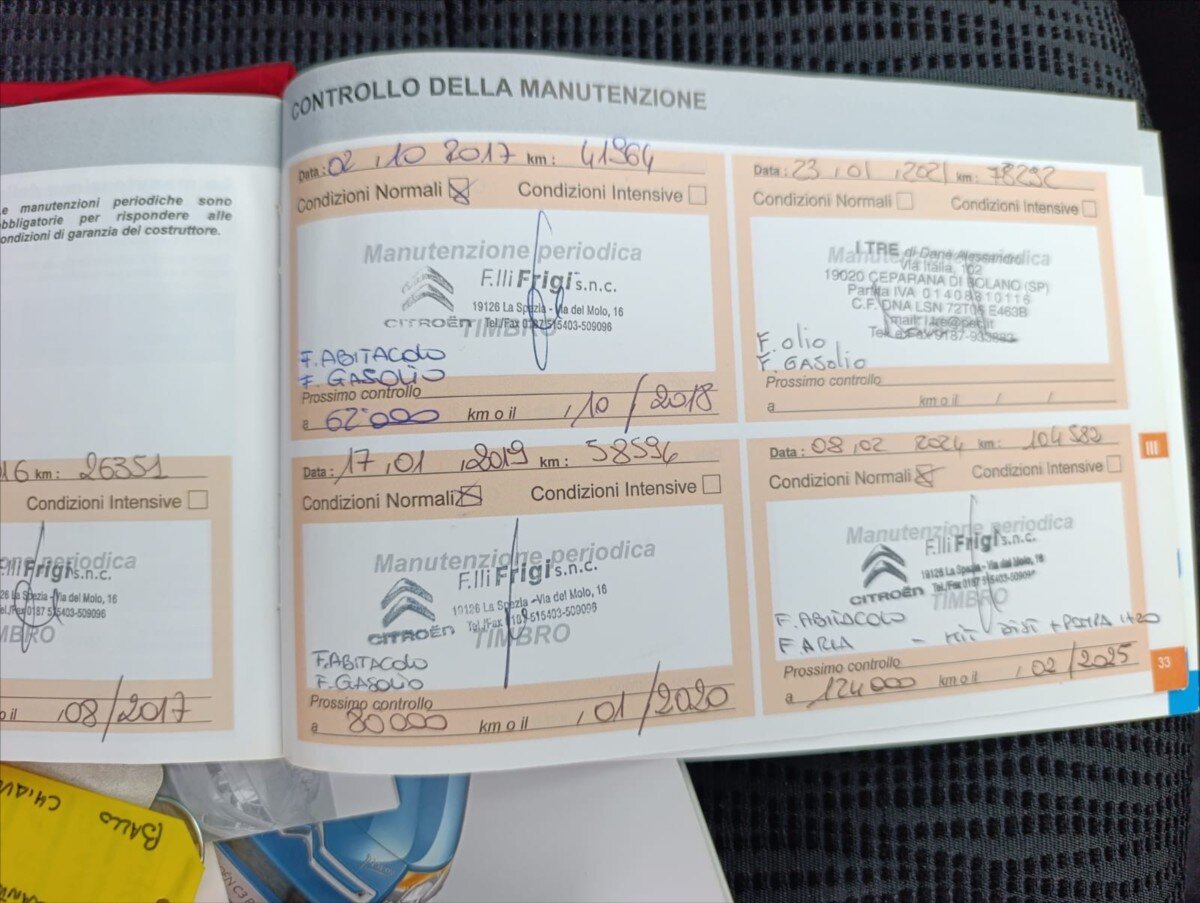 CONTROLLO DELLA MANUTENZIONE
manutenzioni periodiche sono
obbligatorie per rispondere alle
condizioni di garanzia del costruttore.
16 km: 26351
Condizioni Intensive
periodica
F.lli Frigi s.n.c.
Spezia - Via del Molo, 16
515403-509096
TIMBRO
o il ,08/2017
Data: 02 ,10 2017 km: 41964
Condizioni Normali Condizioni Intensive
Manutenzione periodica
F.lli Frigi s.n.c.
19126 La Spezia - Via del Molo, 16
CITROËN Tel./Fax 0187 515403-509096
TIMBRO
F. ABITACOLO
F. GASOLIO
Prossimo controllo
a 62.000 km o il ,10/2018
Data: 17,01 ,2019 km: 58594
Condizioni Normali Condizioni Intensive
Manutenzione periodica
F.lli Frigi s.n.c.
19126 La Spezia - Via del Molo, 16
CITROËN Tel./Fax 515403-509096
TIMBRO
F. ABITACOLO
F. GASOLIO
Prossimo controllo
a 80000 km o il ,01/2020
Data: 23 ,01 ,2021 km: 78292
Condizioni Normali Condizioni Intensive
Manutenzione periodica
I TRE di Dane Alessandro
Via Italia, 102
19020 CEPARANA DI BOLANO (SP)
Partita IVA 01408310116
C.F. DNA LSN E463B
F. OLIO
F. GASOLIO
Prossimo controllo
a km o il / /
Data: 08,02 2024 km: 104583
Condizioni Normali Condizioni Intensive
Manutenzione periodica
F.lli Frigi s.n.c.
19126 La Spezia - Via del Molo, 16
CITROËN Tel./Fax 0187 515403-509096
TIMBRO
F. ABITACOLO
F. ARIA - KIT DIST + POMPA H20
Prossimo controllo
a 124000 km o il ,02/2025
III
33
BALLO